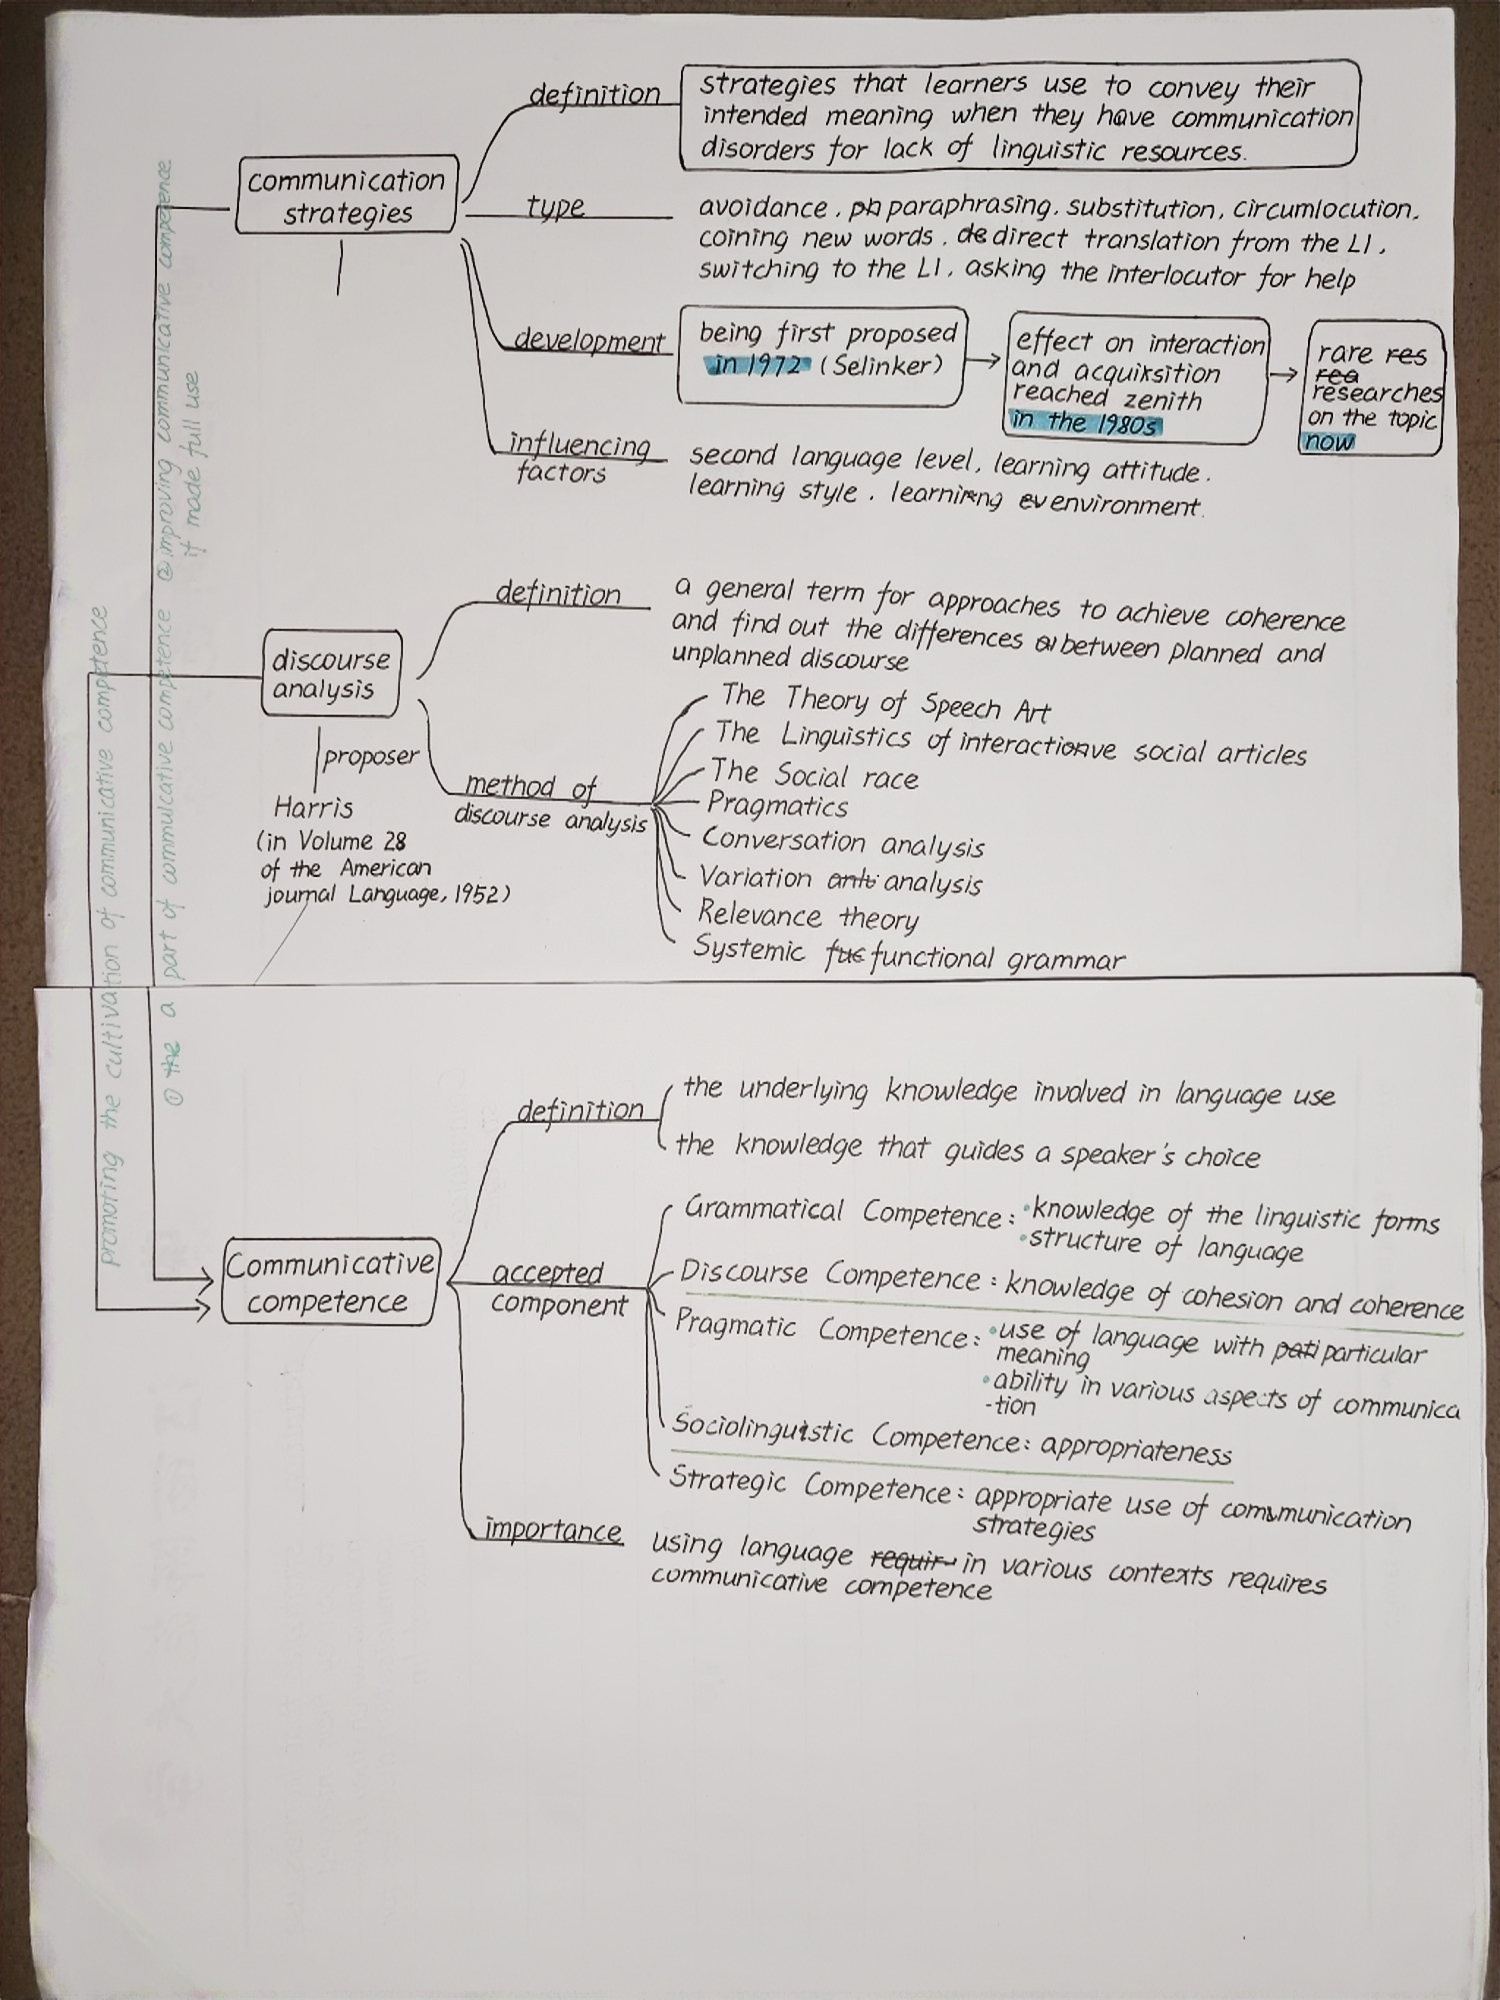 definition
strategies that learners use to convey their
intended meaning when they have communication
disorders for lack of linguistic resources.
communication
strategies
type
avoidance, paraphrasing, substitution, circumlocution,
coining new words, direct translation from the L1,
switching to the L1, asking the interlocutor for help
development
being first proposed
in 1972 (Selinker)
effect on interaction
and acquisition
reached zenith
in the 1980s
rare res
rea
researches
on the topic
now
influencing
factors
second language level, learning attitude,
learning style, learning environment.
definition
a general term for approaches to achieve coherence
and find out the differences between planned and
unplanned discourse
discourse
analysis
proposer
Harris
(in Volume 28
of the American
journal Language, 1952)
method of
discourse analysis
The Theory of Speech Art
The Linguistics of interactive social articles
The Social race
Pragmatics
Conversation analysis
Variation analysis
Relevance theory
Systemic fuc functional grammar
promoting the cultivation of communicative competence
① the a part of commuicative competence ② improving communicative competence
if made full use
definition
the underlying knowledge involved in language use
the knowledge that guides a speaker's choice
Communicative
competence
accepted
component
Grammatical Competence: •knowledge of the linguistic forms
•structure of language
Discourse Competence: knowledge of cohesion and coherence
Pragmatic Competence: •use of language with pati particular
meaning
•ability in various aspects of communica
-tion
Sociolinguistic Competence: appropriateness
Strategic Competence: appropriate use of communication
strategies
importance
using language requir in various contexts requires
communicative competence